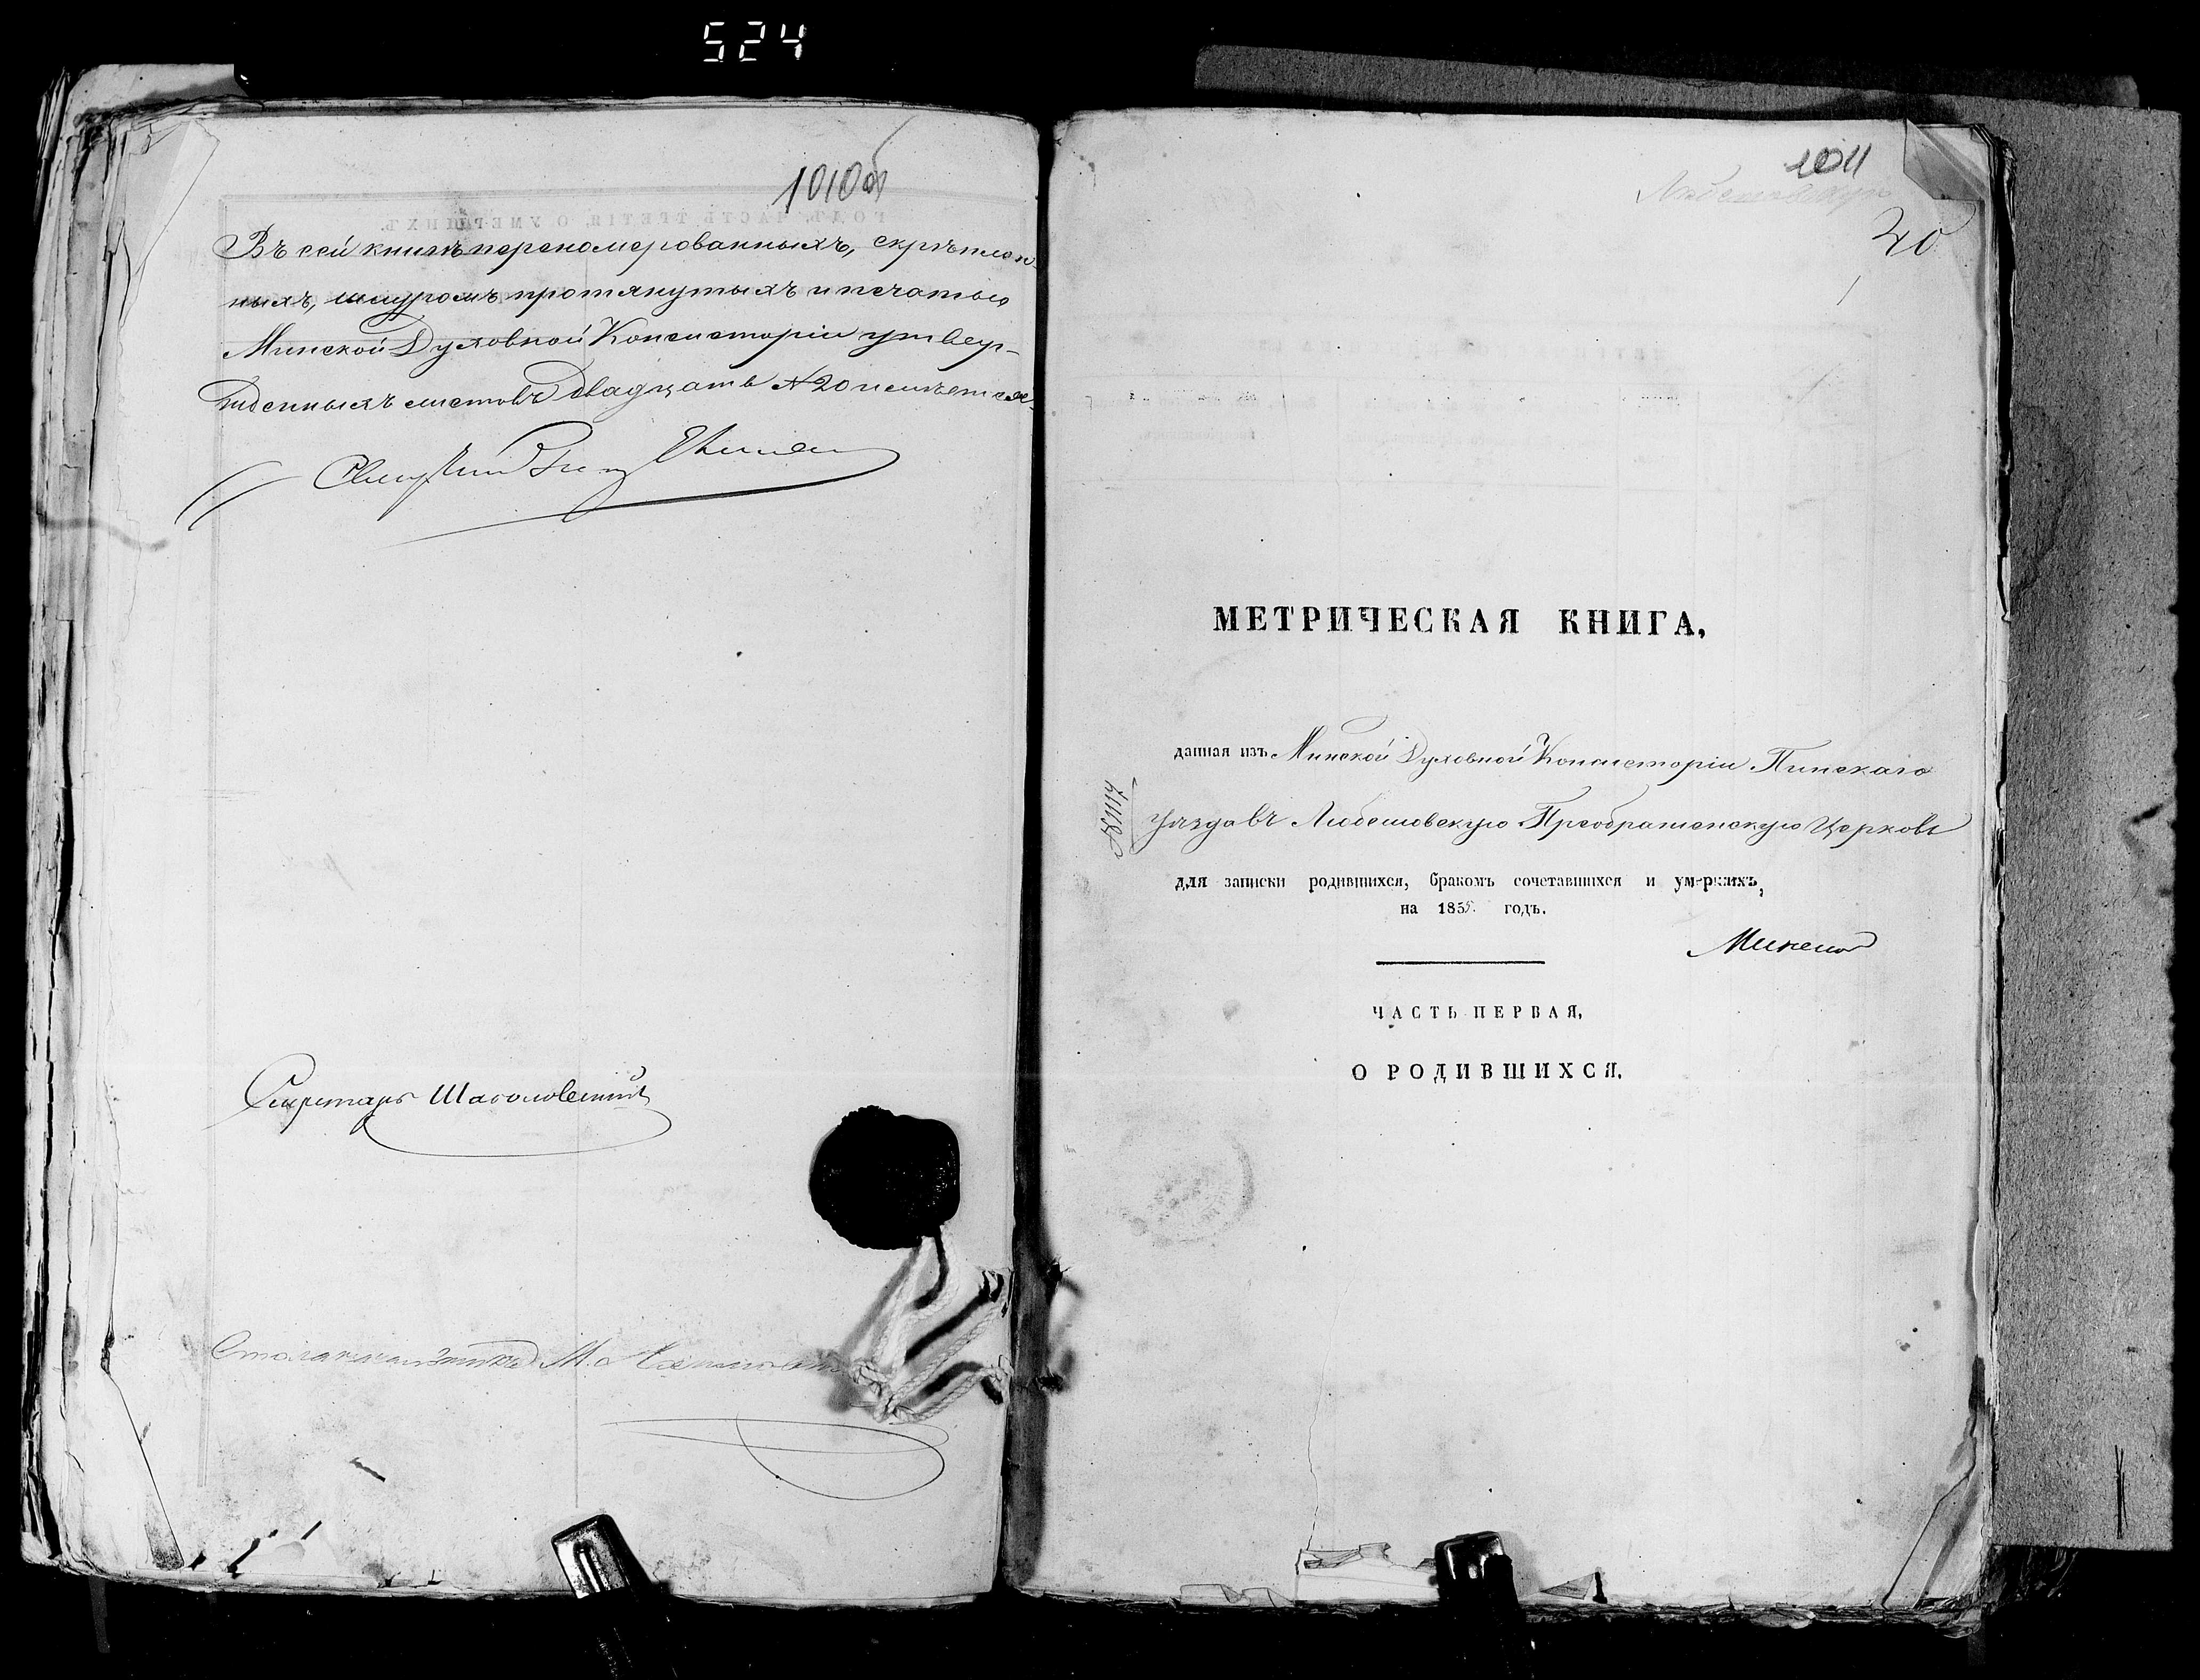 524
1010об
Въ сей книгѣ переномерованныхъ, скрѣплен-
ныхъ, шнуромъ протянутыхъ и печатью
Минской Духовной Консисторіи утвер-
жденныхъ листовъ двадцать № 20 имѣется.
Секретарь
Столоначальникъ М.
1011
Любешовскую
20
1
МЕТРИЧЕСКАЯ КНИГА,
данная изъ Минской Духовной Консисторіи Пинскаго
№ 1117
уѣзда въ Любешовскую Преображенскую Церковь
для записки родившихся, бракомъ сочетавшихся и умершихъ,
на 1855 годъ.
ЧАСТЬ ПЕРВАЯ,
О РОДИВШИХСЯ.